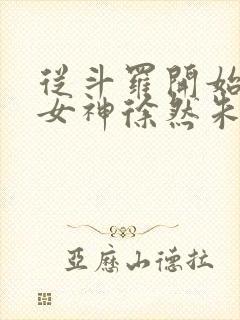 從斗羅開始
女神徐然朱
亞歷山德拉